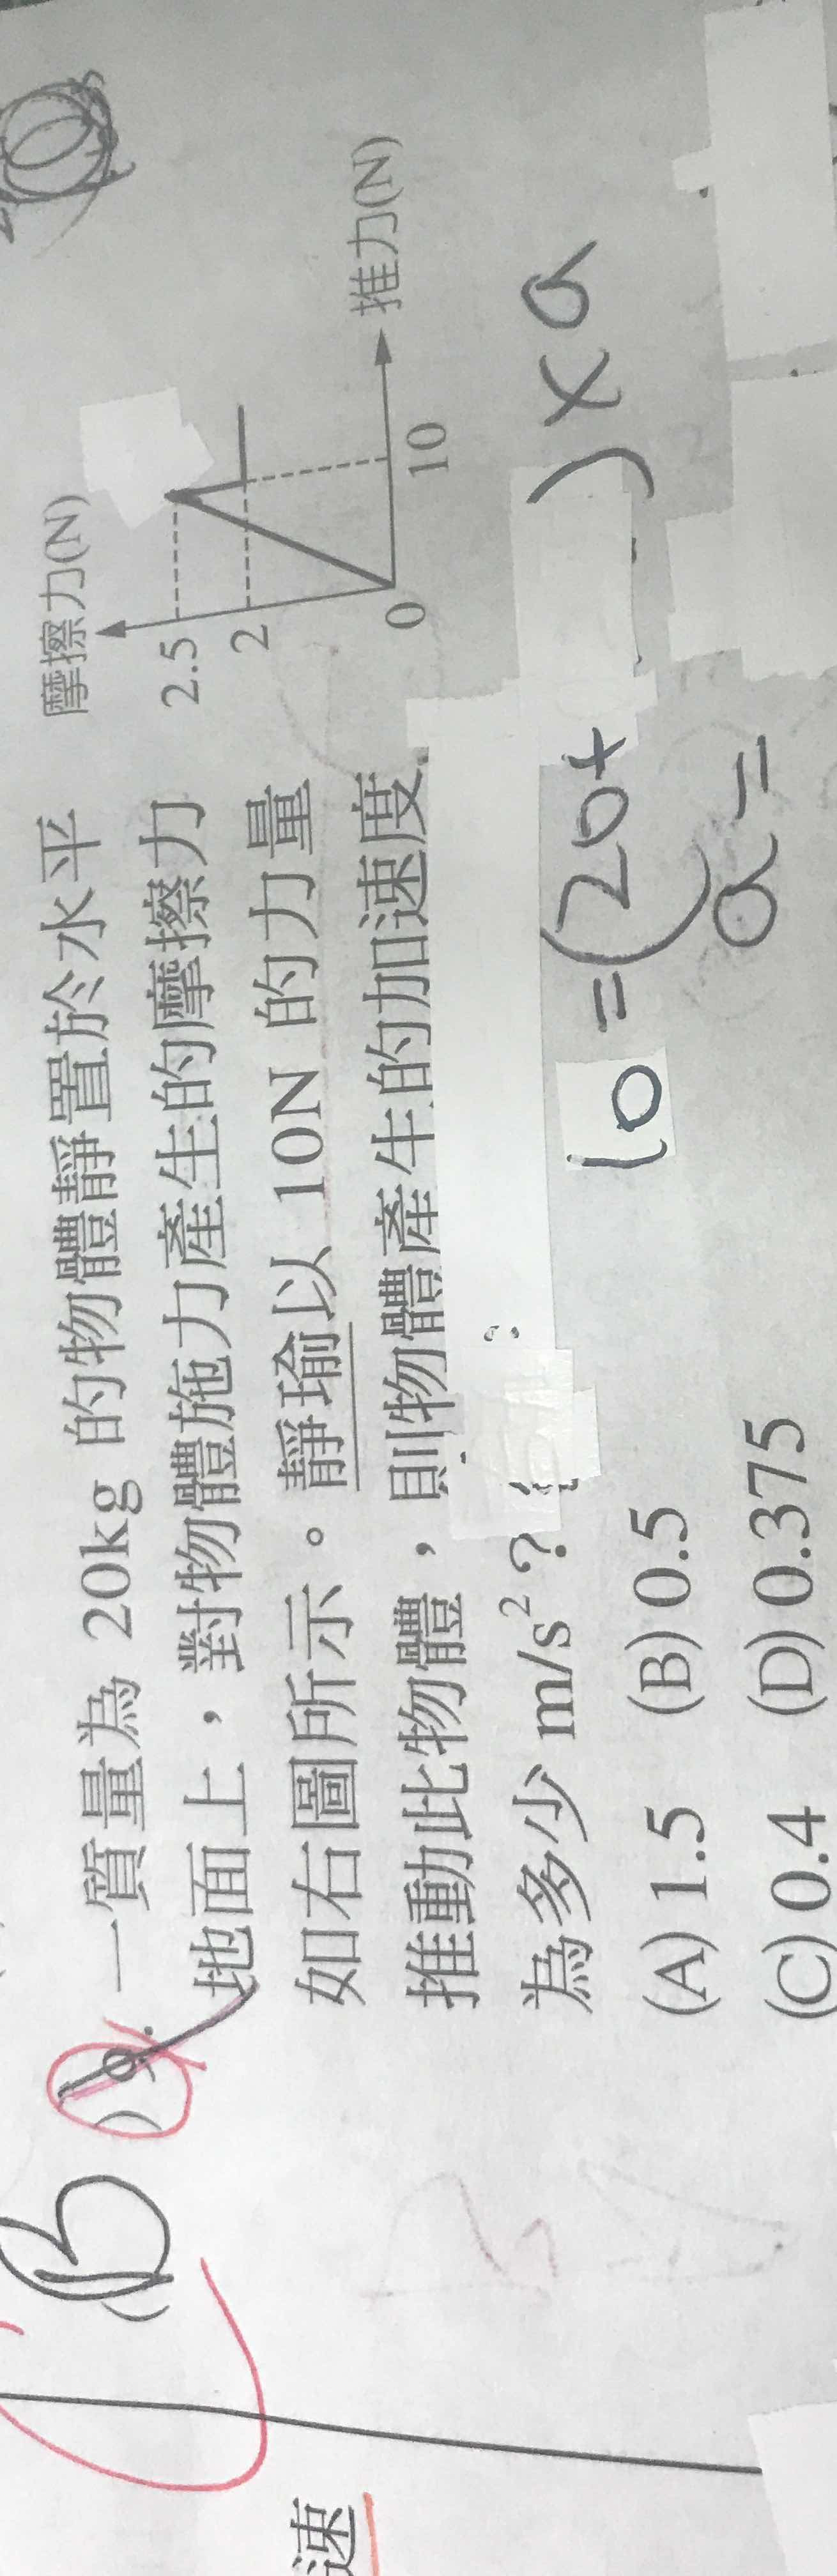 一質量為 20kg 的物體靜置於水平
地面上，對物體施力產生的摩擦力
如右圖所示。靜瑜以 10N 的力量
推動此物體，則物體產生的加速度
為多少 m/s²？
(A) 1.5 (B) 0.5
(C) 0.4 (D) 0.375
摩擦力(N)
2.5
2
0
10
推力(N)
10 = (20+ ) × a
a =
(B
速